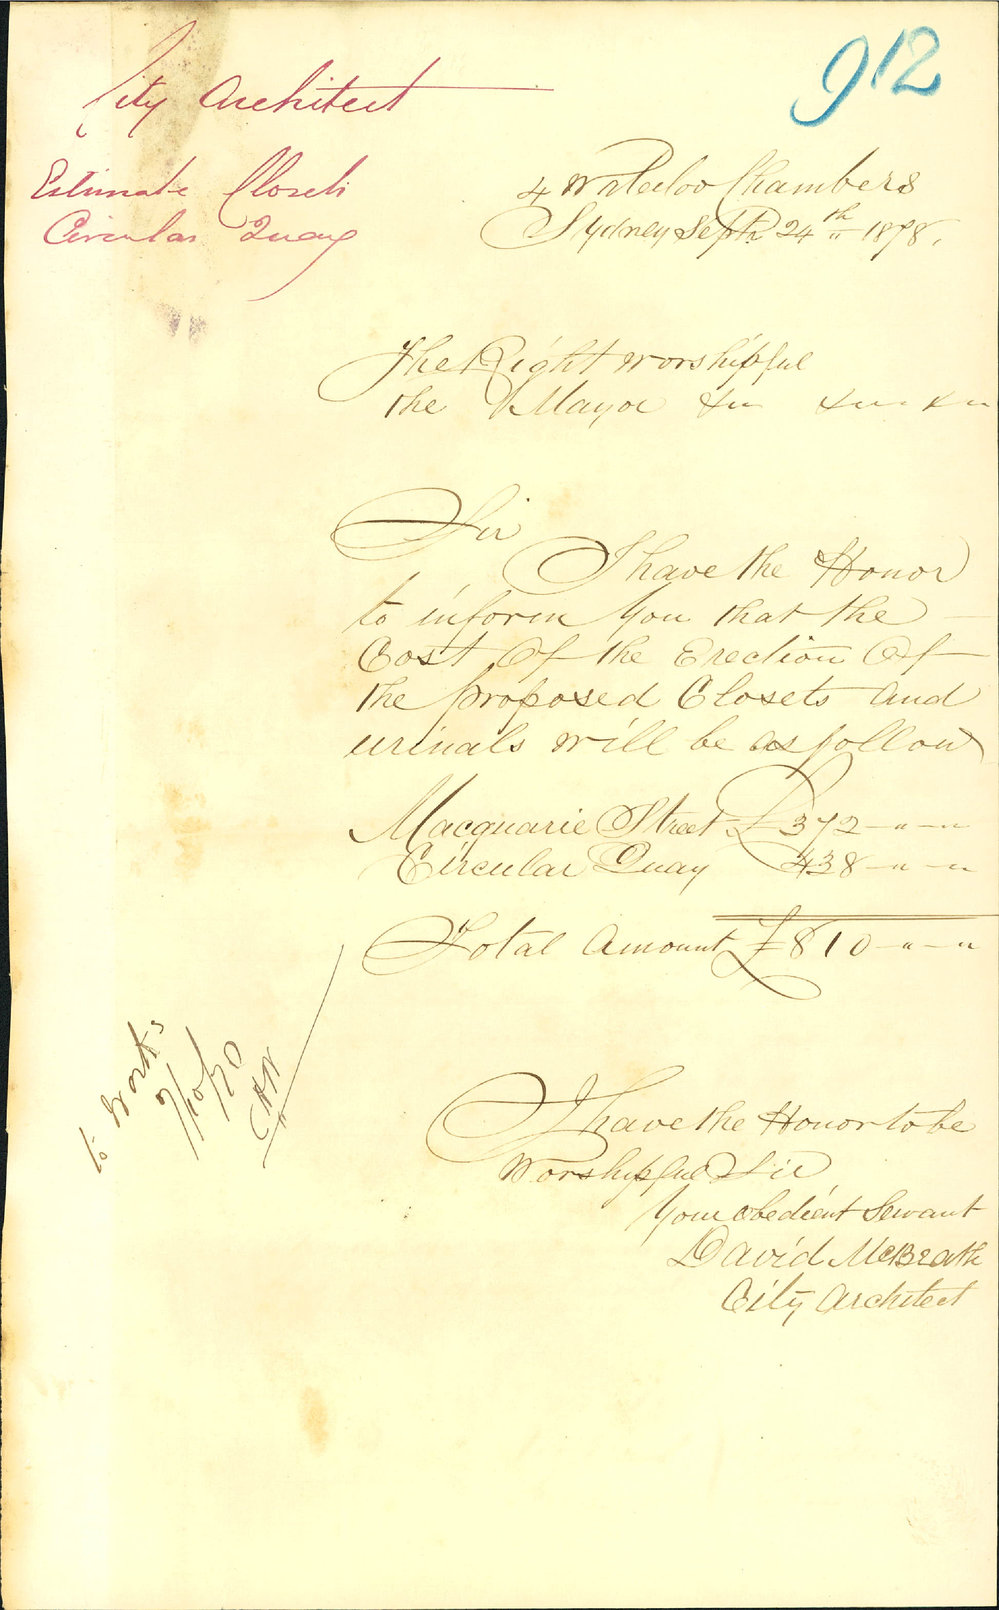 912
City Architect
Estimate Closets
Circular Quay
4 Waterloo Chambers
Sydney Septr 24th 1878.
The Right Worshipful
the Mayor &c &c &c
Sir
I have the Honor
to inform You that the
Cost Of the Erection Of
the proposed Closets and
urinals will be as follow
Macquarie Street £372 - " - "
Circular Quay 438 - " - "
Total Amount £810 - " - "
to Works
I have the Honor to be
Worshipful Sir
Your obedient Servant
David McBeath
City Architect